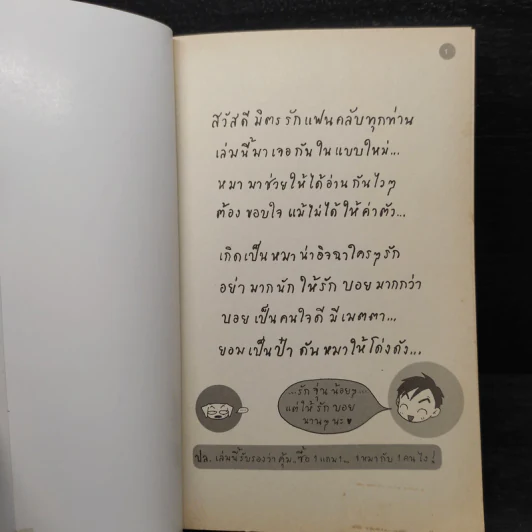 สวัสดี มิตรรักแฟนคลับทุกท่าน
เล่มนี้มาเจอกันในแบบใหม่...
หมามาช่วยให้ได้อ่านกันไวๆ
ต้องขอบใจ แม้ไม่ได้ให้ค่าตัว...
เกิดเป็นหมาน่าอิจฉาใครๆรัก
อย่ามากนัก ให้รัก บอย มากกว่า
บอย เป็นคนใจดี มีเมตตา...
ยอมเป็นป๋า ดันหมาให้โด่งดัง...
...รัก จุ่น น้อยๆ
แต่ให้ รัก บอย
นานๆ นะ ♥
ปล. เล่มนี้รับรองว่าคุ้ม. ซื้อ 1 แถม 1... 1 หมากับ 1 คนไง !